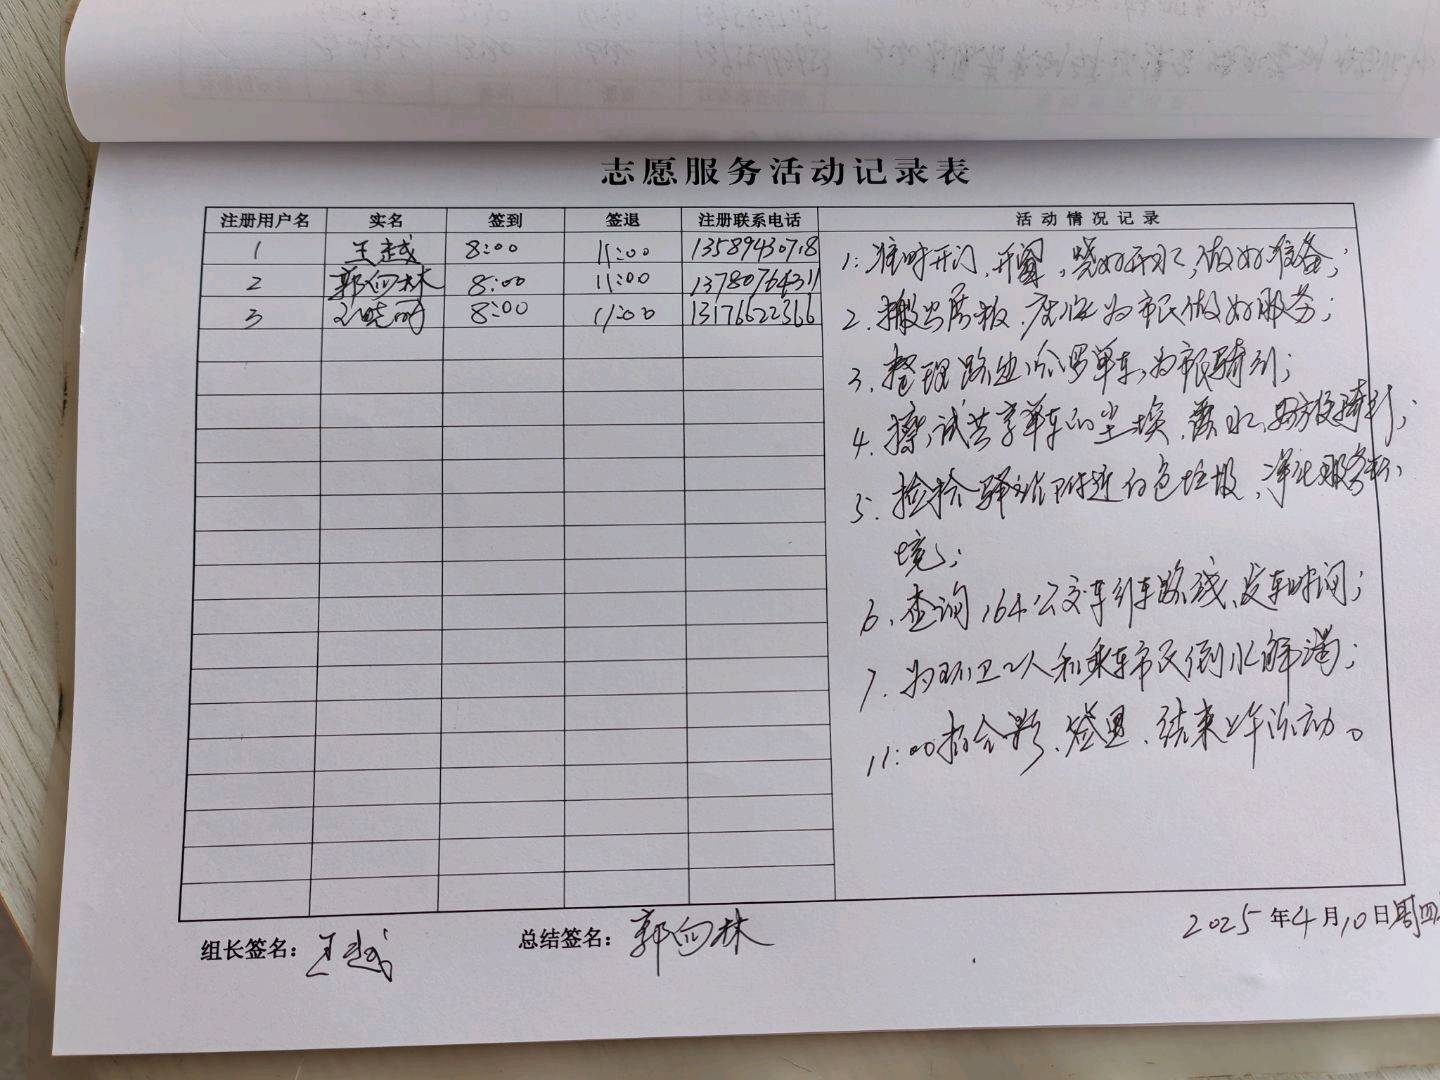 志愿服务活动记录表
注册用户名 实名 签到 签退 注册联系电话 活动情况记录
1 王越 8:00 11:00 13589430718
2 郭向林 8:00 11:00 13780764311
3 晓 8:00 11:00 13176622366
1. 准时开门、开窗,烧好开水,做好准备;
2. 搬出展板、为市民做好服务;
3. 整理路边单车,为市民骑行;
4. 擦试共享单车的尘埃、露水、方便骑行;
5. 捡拾驿站附近白色垃圾、净化服务环
境;
6. 查询164公交车行车路线、发车时间;
7. 为环卫工人和乘车市民倒水解渴;
11:00拍合影、签退、结束上午活动。
组长签名:王越 总结签名:郭向林 2025年4月10日周四